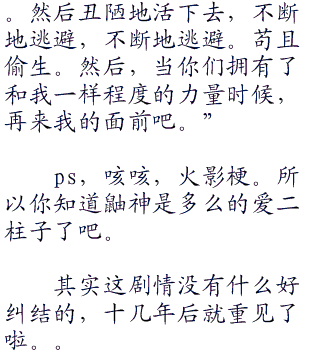 。然后丑陋地活下去，不断
地逃避，不断地逃避。苟且
偷生。然后，当你们拥有了
和我一样程度的力量时候，
再来我的面前吧。”
ps，咳咳，火影梗。所
以你知道鼬神是多么的爱二
柱子了吧。
其实这剧情没有什么好
纠结的，十几年后就重见了
啦。。